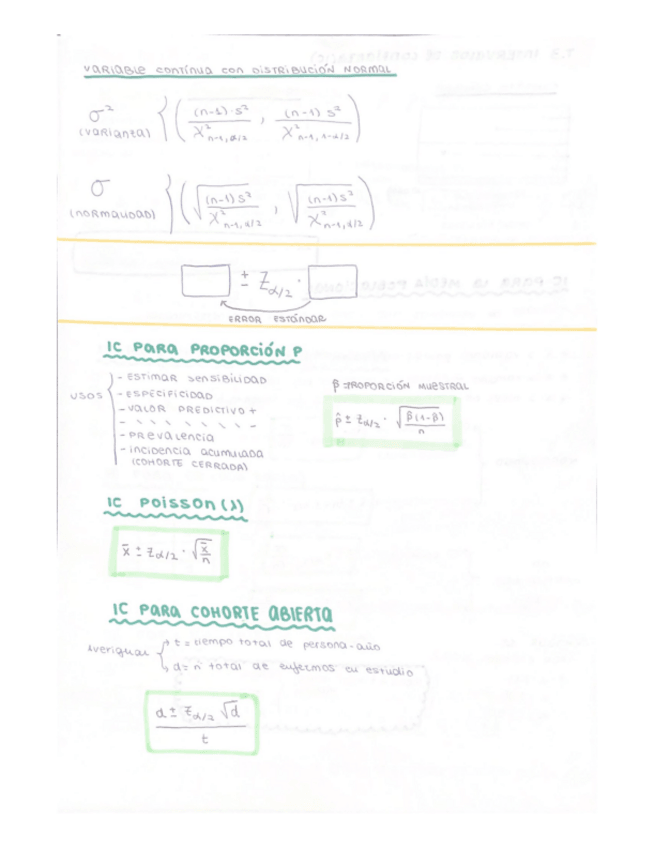 VARIABLE CONTÍNUA CON DISTRIBUCIÓN NORMAL
σ² (VARIANZA) { ( (n-1)·s² / χ²n-1, α/2 , (n-1) s² / χ²n-1, 1-α/2 )
σ (NORMALIDAD) { ( √((n-1) s² / χ²n-1, α/2) , √((n-1) s² / χ²n-1, α/2) )
± Zα/2 ·
ERROR ESTÁNDAR
IC PARA PROPORCIÓN P
USOS
- ESTIMAR SENSIBILIDAD
- ESPECIFICIDAD
- VALOR PREDICTIVO +
- \ \ \ \ \ \ \ -
- PREVALENCIA
- INCIDENCIA ACUMULADA
(COHORTE CERRADA)
p̂ = PROPORCIÓN MUESTRAL
p̂ ± Zα/2 · √(p̂(1-p̂) / n)
IC POISSON (λ)
x̄ ± Zα/2 · √(x̄ / n)
IC PARA COHORTE ABIERTA
Averiguar
t = tiempo total de persona-año
d = nº total de enfermos en estudio
d ± Zα/2 √d / t